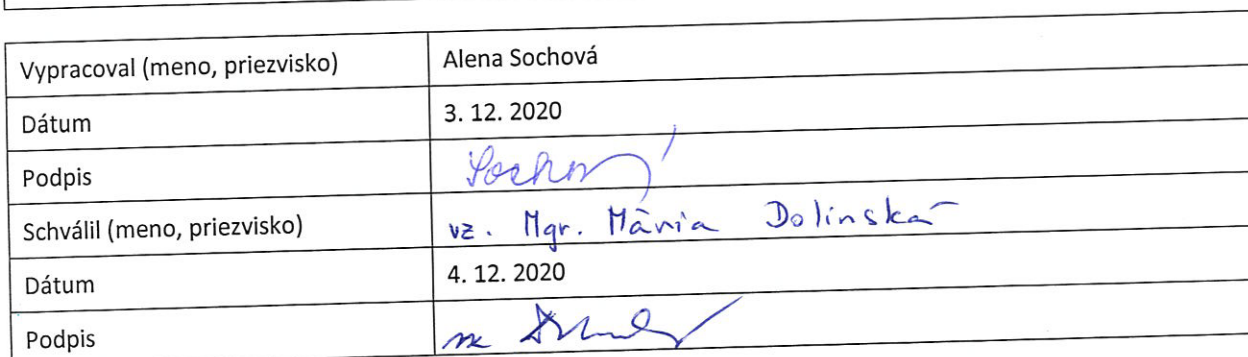 Vypracoval (meno, priezvisko) Alena Sochová
Dátum 3. 12. 2020
Podpis Sochová
Schválil (meno, priezvisko) vz. Mgr. Mária Dolinská
Dátum 4. 12. 2020
Podpis